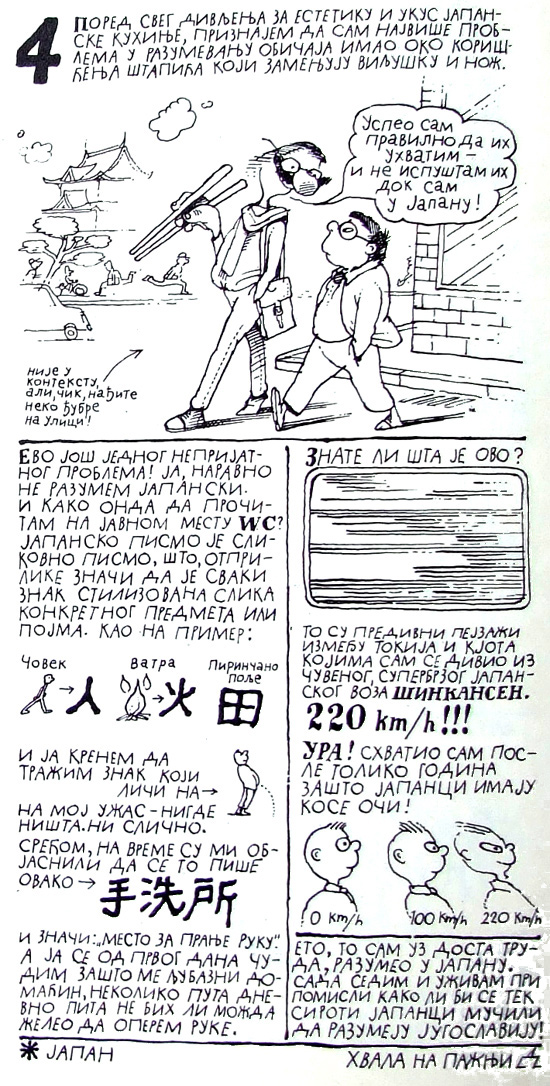 4 Поред свег дивљења за естетику и укус јапан-
ске кухиње, признајем да сам највише проб-
лема у разумевању обичаја имао око кориш-
ћења штапића који замењују виљушку и нож.
Успео сам
правилно да их
ухватим –
и не испуштам их
док сам
у Јапану!
није у
контексту,
али, чик, нађите
неко ђубре
на улици!
Ево још једног непријат-
ног проблема! Ја, наравно
не разумем јапански.
И како онда да прочи-
там на јавном месту WC?
Јапанско писмо је сли-
ковно писмо, што, отпри-
лике значи да је сваки
знак стилизована слика
конкретног предмета или
појма. Као на пример:
Човек Ватра Пиринчано
поље
→人 →火 田
И ја кренем да
тражим знак који
личи на→
На мој ужас – нигде
ништа ни слично.
Срећом, на време су ми об-
јаснили да се то пише
овако→
手洗所
и значи: „место за прање руку".
А ја се од првог дана чу-
дим зашто ме љубазни до-
маћин, неколико пута днев-
но пита не бих ли можда
желео да оперем руке.
Знате ли шта је ово?
То су предивни пејзажи
између Токија и Кјота
којима сам се дивио из
чувеног, супербрзог јапан-
ског воза Шинкансен.
220 km/h!!!
Ура! Схватио сам пос-
ле толико година
зашто Јапанци имају
косе очи!
0 km/h 100 km/h 220 km/h
Ето, то сам уз доста тру-
да, разумео у Јапану.
Сада седим и уживам при
помисли како ли би се тек
сироти Јапанци мучили
да разумеју Југославију!
* Јапан
Хвала на пажњи